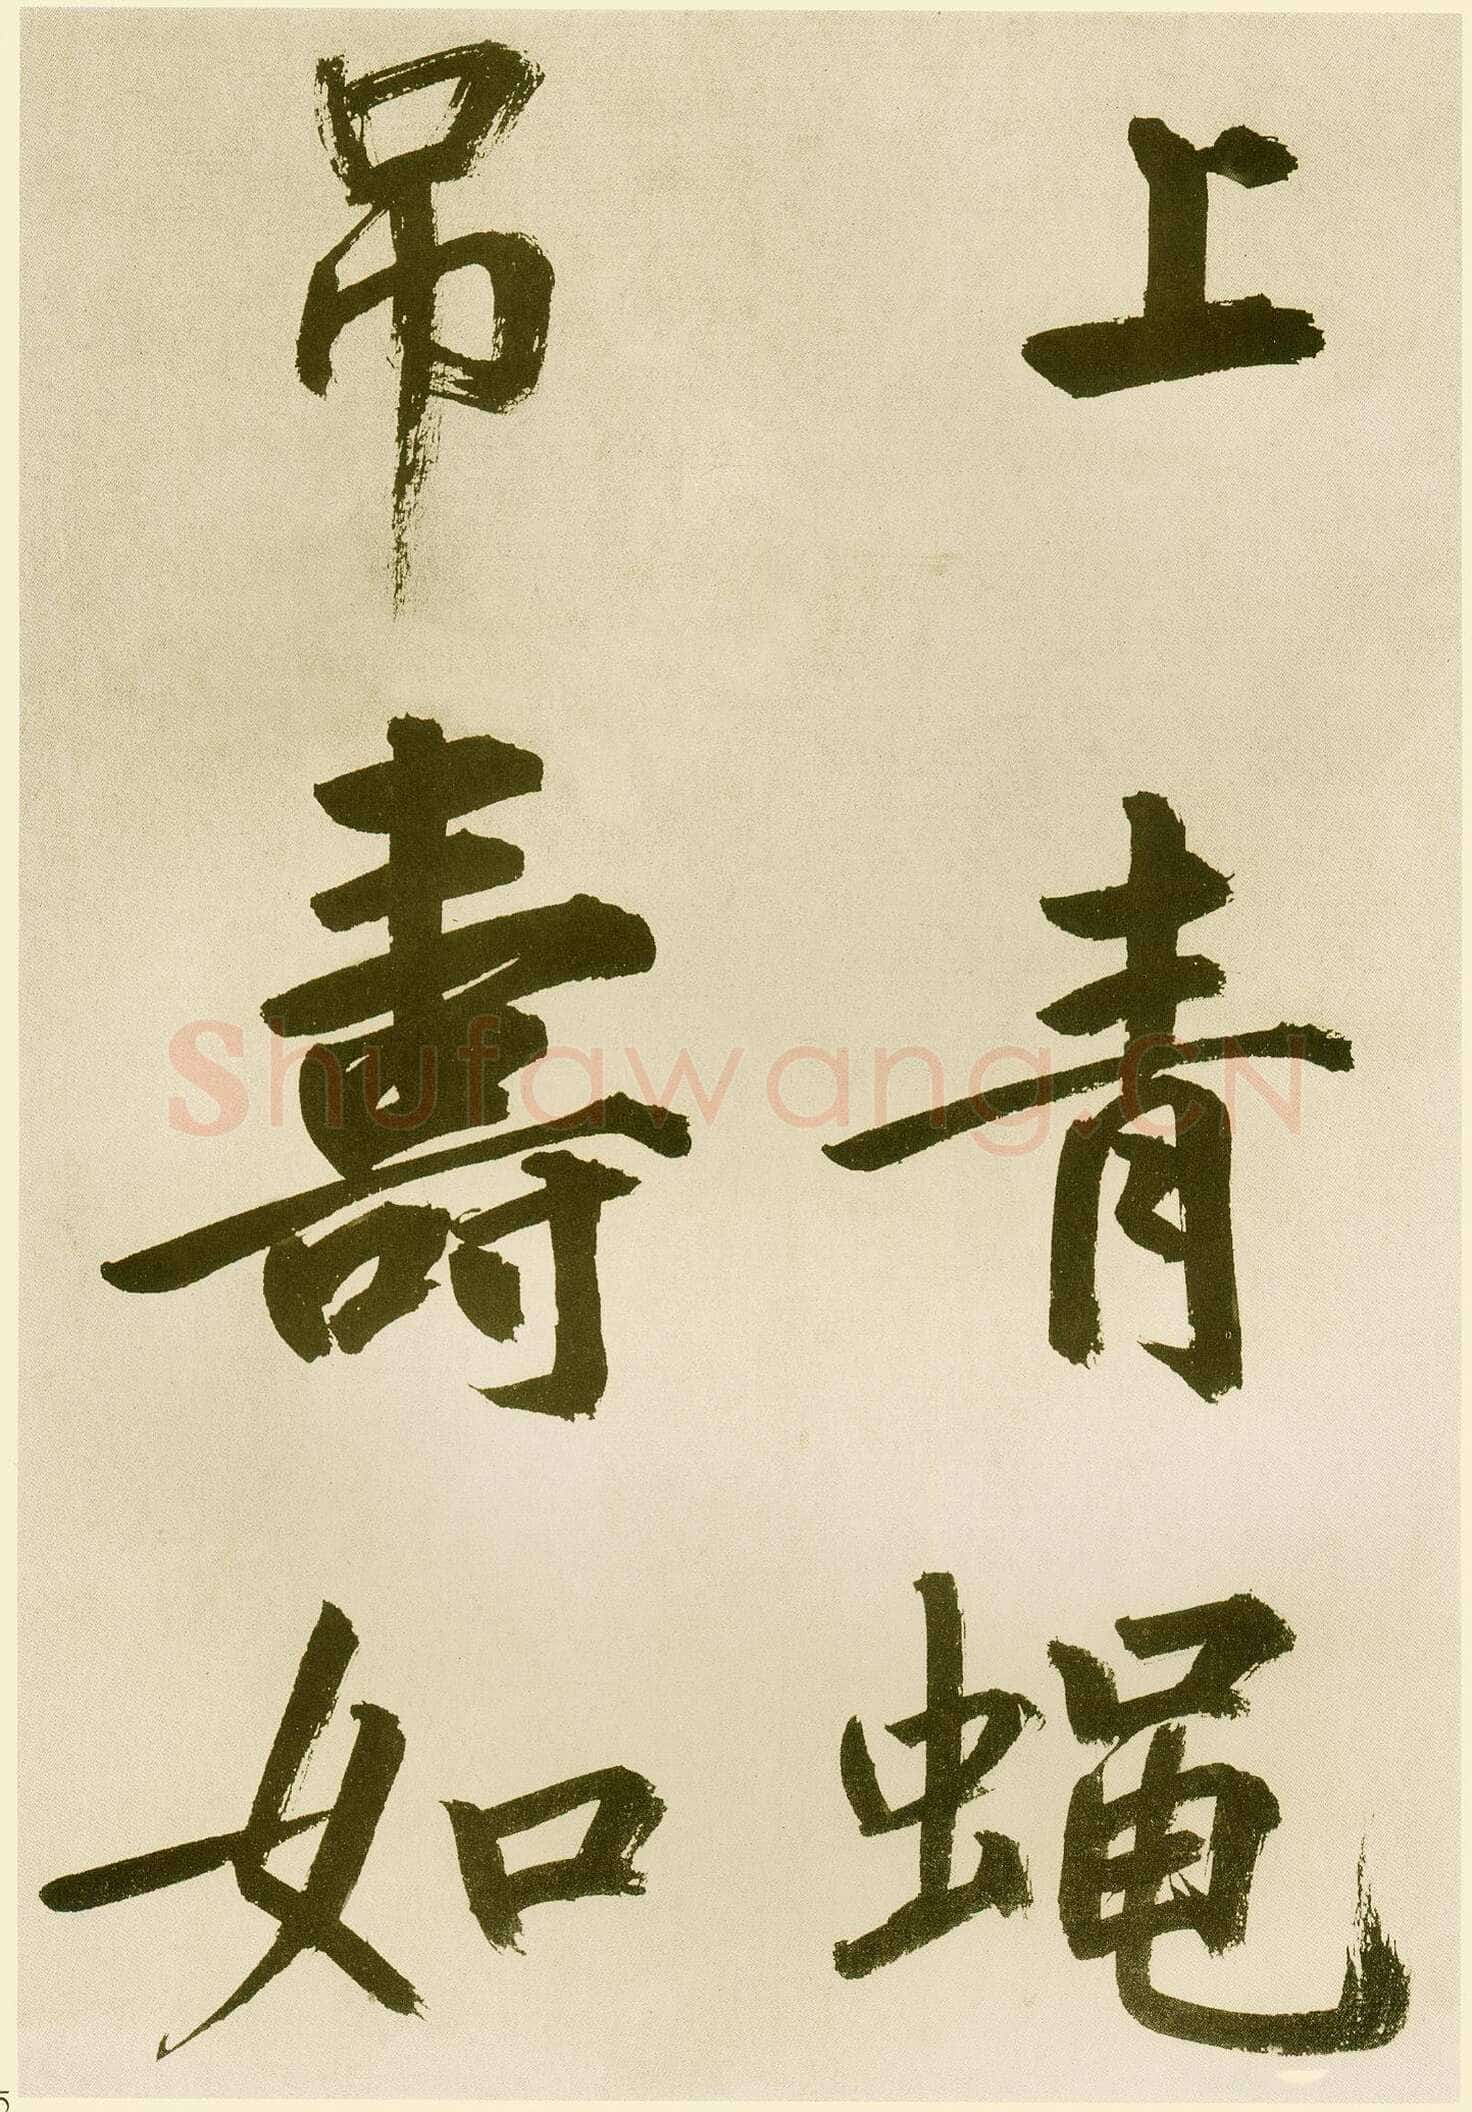 上青蝇
吊壽如
Shufawang.CN
5